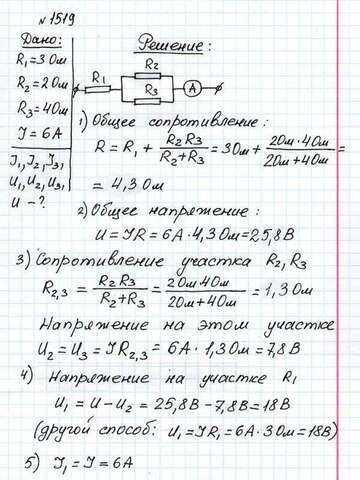 №1519
Дано:
R₁=3Ом
R₂=2Ом
R₃=4Ом
I=6А
I₁,I₂,I₃,
U₁,U₂,U₃,
U-?
Решение:
R₁
R₂
R₃
A
1) Общее сопротивление:
R = R₁ + R₂R₃/R₂+R₃ = 3Ом + 2Ом·4Ом/2Ом+4Ом =
= 4,3Ом
2) Общее напряжение:
U=IR=6А·4,3Ом=25,8В
3) Сопротивление участка R₂,R₃
R₂,₃ = R₂R₃/R₂+R₃ = 2Ом4Ом/2Ом+4Ом = 1,3Ом
Напряжение на этом участке
U₂=U₃=IR₂,₃= 6А·1,3Ом=7,8В
4) Напряжение на участке R₁
U₁=U-U₂=25,8В-7,8В=18В
(другой способ: U₁=IR₁=6А·3Ом=18В)
5) I₁=I=6А